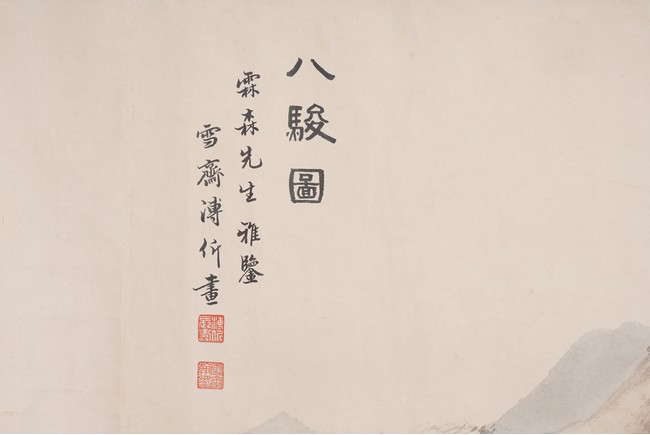 八駿圖
霖森先生雅鑒
雪齋溥伒畫